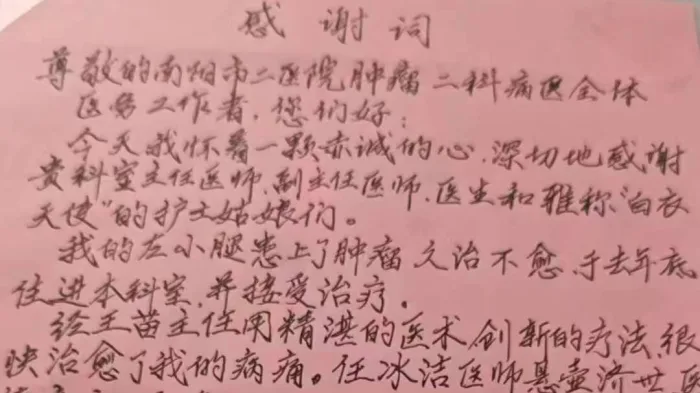 感谢词
尊敬的南阳市二医院肿瘤二科病区全体
医务工作者,您们好:
今天我怀着一颗赤诚的心,深切地感谢
贵科室主任医师,副主任医师,医生和雅称"白衣
天使"的护士姑娘们。
我的左小腿患上了肿瘤久治不愈,于去年底
住进本科室,并接受治疗。
经王苗主任用精湛的医术,创新的疗法,很
快治愈了我的病痛。任冰洁医师悬壶济世医